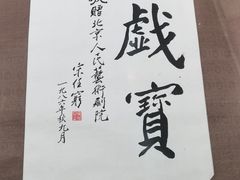 戯寶
贈北京人民藝術劇院
宋任窮
一九八六年秋九月